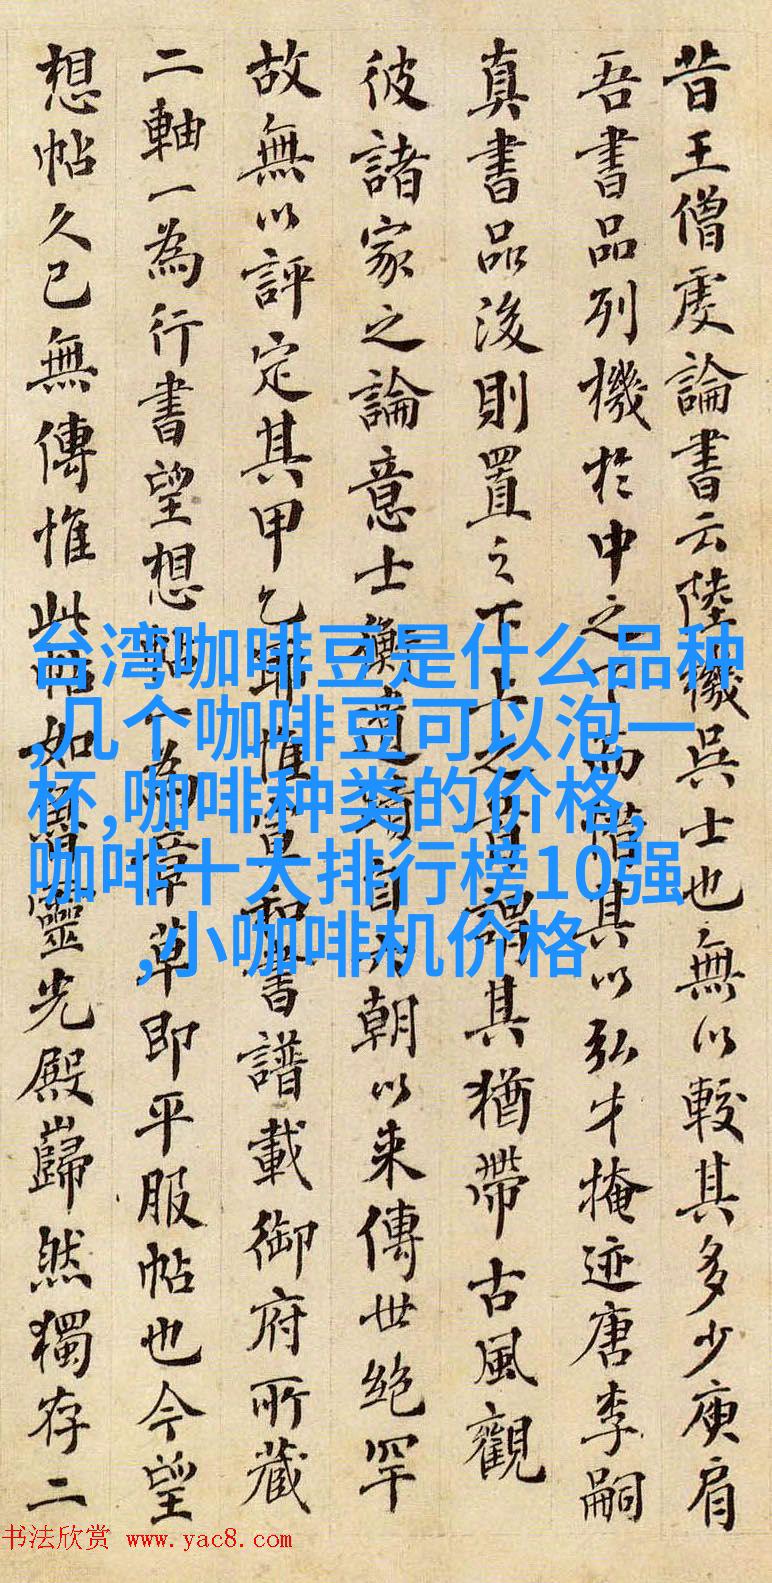 昔王僧虔論書云陸機吳士也無以較其多少庾肩
吾書品列機於中之下而惜其以弘才掩迹唐李嗣
真書品後則置之下上之首謂其猶帶古風觀
彼諸家之論意士衡遺蹟自六朝以来傳世絶罕
故無以評定其甲乙耶惟宣和書譜載御府所藏
二軸一為行書望想軸一為章草即平服帖也今望
想帖久已無傳惟此帖如魯靈光殿巋然獨存二
台湾咖啡豆是什么品种
,几个咖啡豆可以泡一
杯,咖啡种类的价格,
咖啡十大排行榜10强
,小咖啡机价格
书法欣赏 www.yac8.com